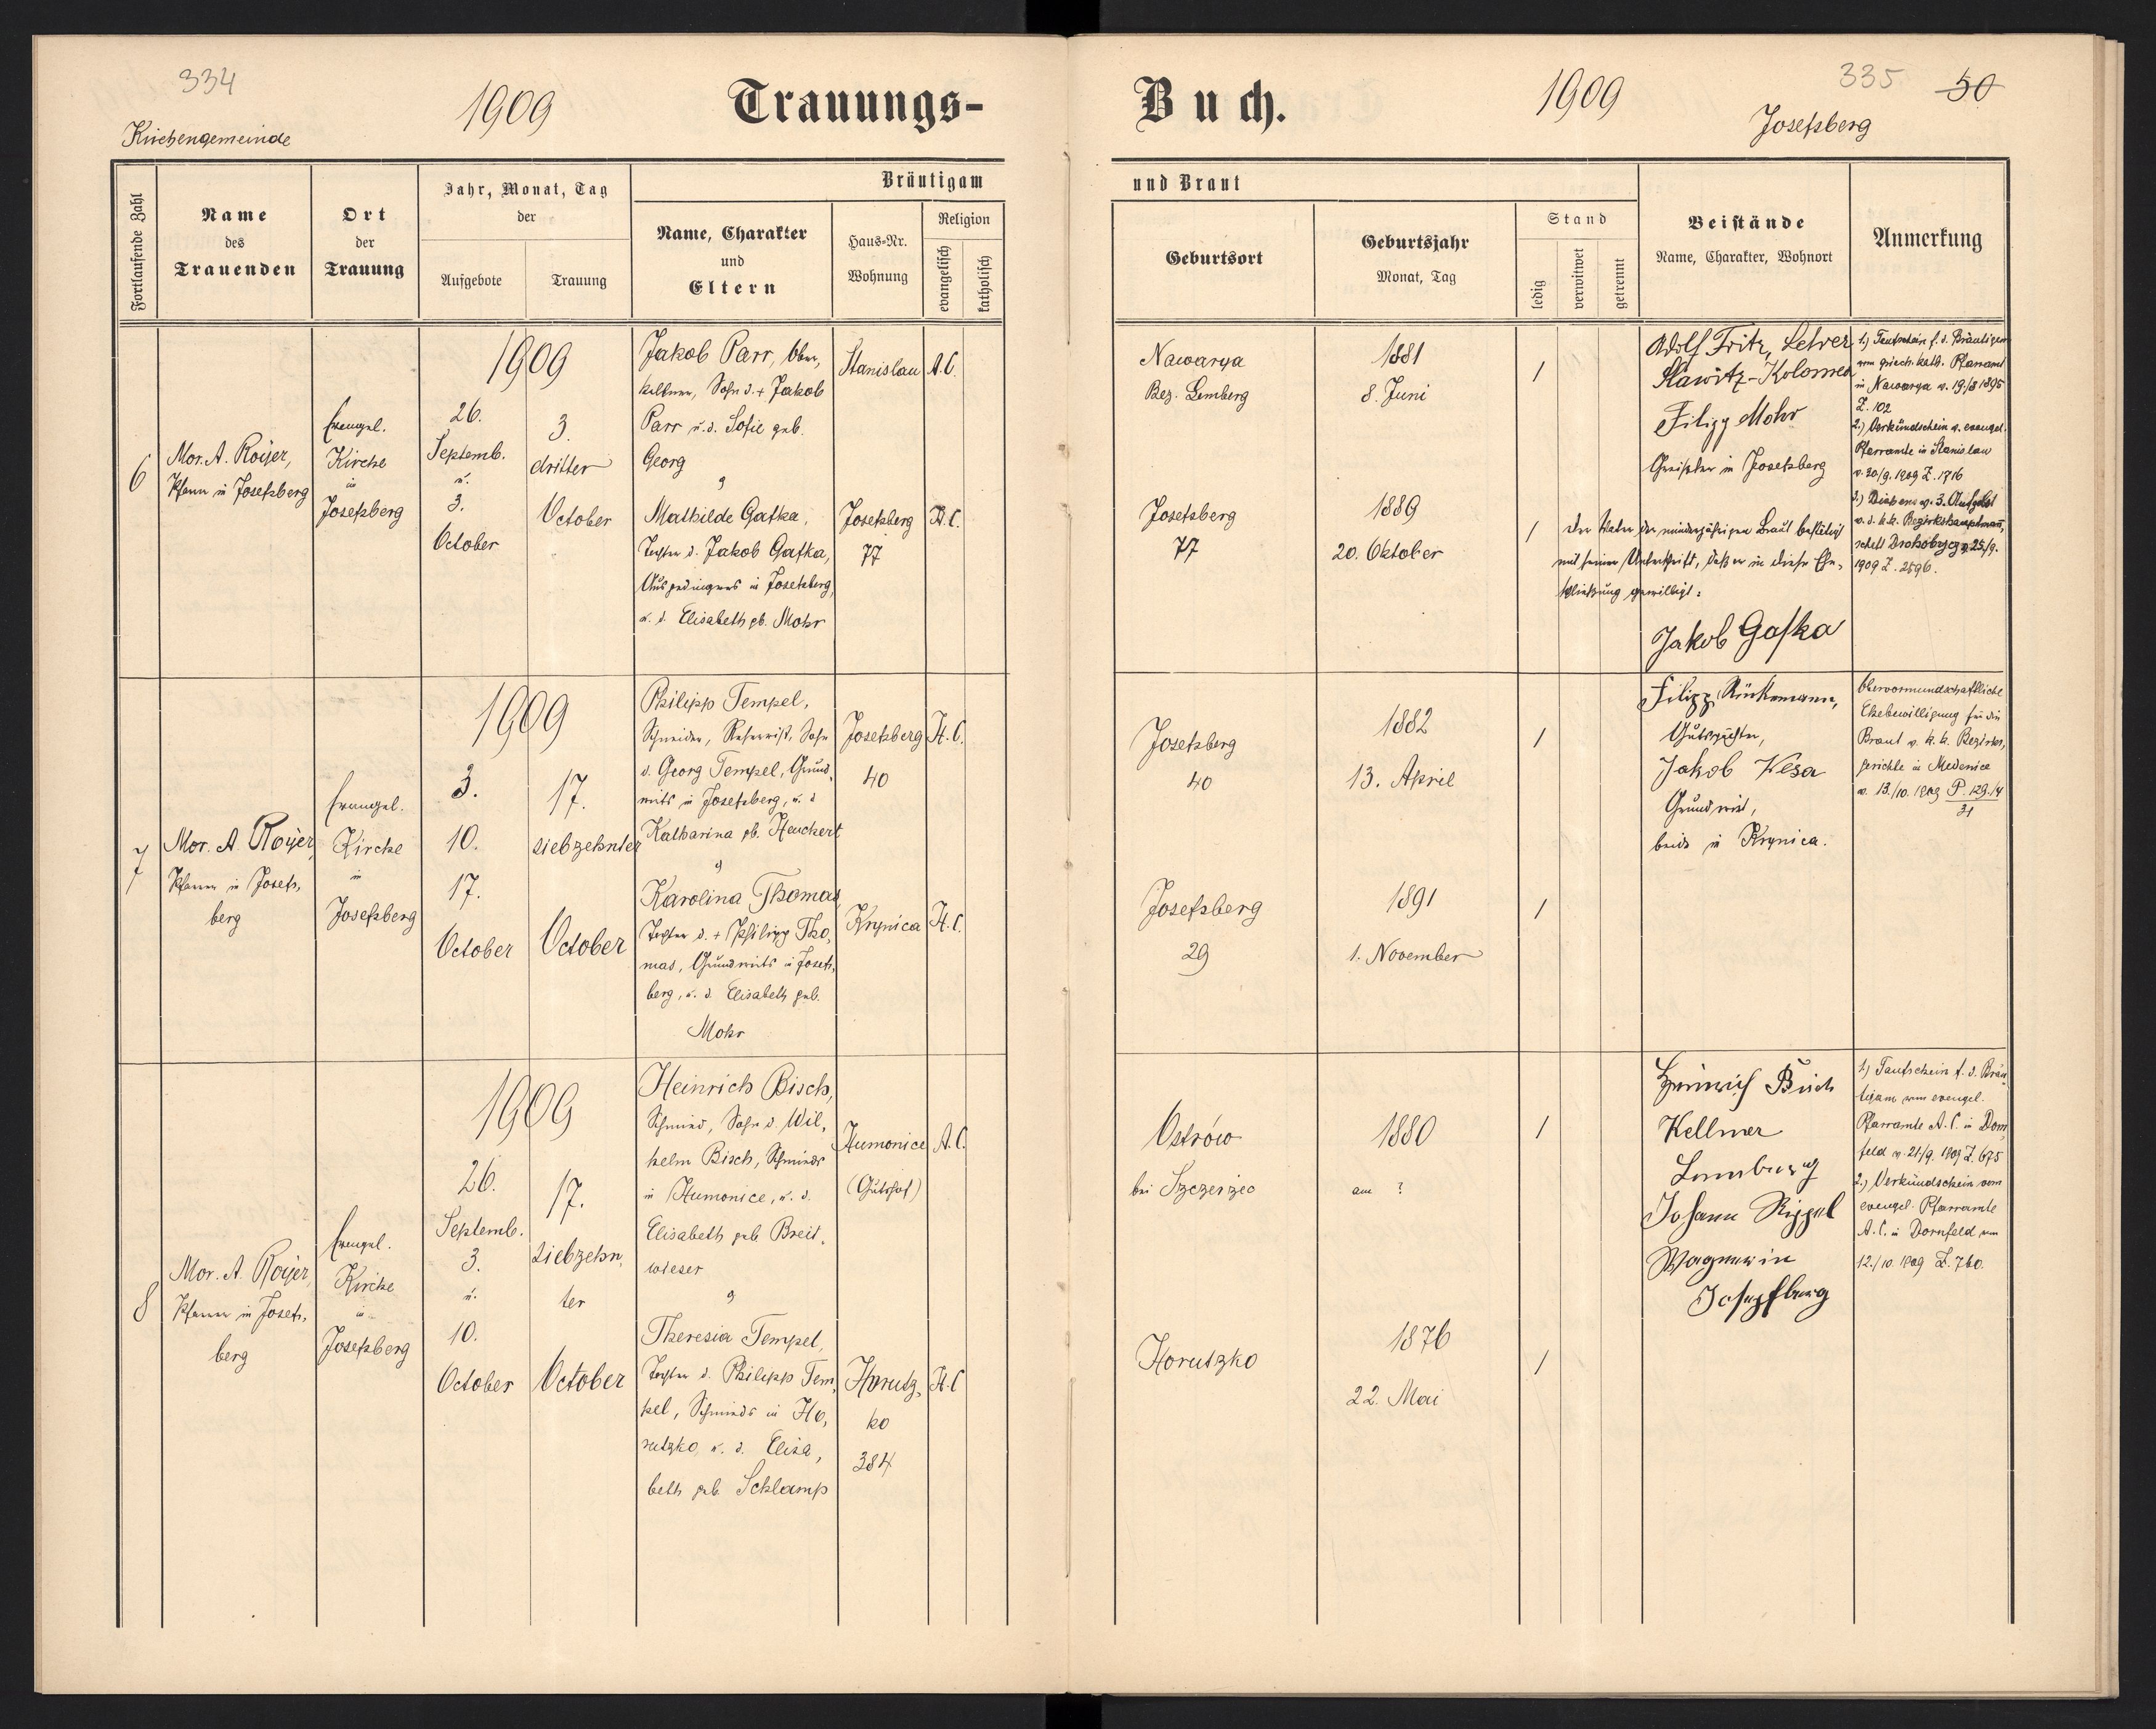 334
1909
Trauungs-
Kirchengemeinde
Buch.
1909
335 50
Josefsberg
Fortlaufende Zahl
Name
des
Trauenden
Ort
der
Trauung
Jahr, Monat, Tag
der
Aufgebote
Trauung
Bräutigam
Name, Charakter
und
Eltern
Haus-Nr.
Wohnung
Religion
evangelisch
katholisch
und Braut
Geburtsort
Geburtsjahr
Monat, Tag
Stand
ledig
verwitwet
getrennt
Beistände
Name, Charakter, Wohnort
Anmerkung
6
Mor. A. Royer,
Pfarrer in Josefsberg
Evangel.
Kirche
in
Josefsberg
1909
26.
Septemb.
u.
3.
October
3.
dritter
October
Jakob Parr, Ober,
kellner, Sohn d. + Jakob
Parr u. d. Sofie geb.
Georg
Stanislau
A.C.
Mathilde Gafka,
Tochter d. Jakob Gafka,
Ausgedingers in Josefsberg,
u. d. Elisabeth gb. Mohr
Josefsberg
77
H.C.
Nawarya
Bez. Lemberg
1881
8. Juni
/
Josefsberg
77
1889
20. Oktober
/
Adolf Fritz, Lehrer
Slawitz-Kolomea
Filipp Mohr
in Josefsberg
Der Vater der minderjährigen Braut bestätigt
mit seiner Unterschrift, daß er in diese Ehe-
schließung gewilligt:
Jakob Gafka
1.) Taufschein f. d. Bräutigam
vom griech. kath. Pfarramt
in Nawarya v. 19./8 1895
Z. 102
2.) Verkündschein v. evangel.
Pfarramte in Stanislau
v. 30/9. 1909 Z. 1716
3.) Dispens v. 3. Aufgebot
v. d. k.k. Bezirkshauptmann,
schaft Drohobycz v. 25/9.
1909 Z. 2596.
7
Mor. A. Royer,
Pfarrer in Josefs,
berg
Evangel.
Kirche
in
Josefsberg
1909
3.
10.
17.
October
17.
siebzehnter
October
Philipp Tempel,
Schneider, Reservist, Sohn
d. Georg Tempel, Grund,
wirts in Josefsberg, u. d.
Katharina gb. Heuchert
Josefsberg
40
H.C.
Karolina Thomas
Tochter d. + Philipp Tho,
mas, Grundwirts in Josefs,
berg, u. d. Elisabeth geb.
Mohr
Krynica
H.C.
Josefsberg
40
1882
13. April
/
Josefsberg
29
1891
1. November
/
Filipp Rückemann,
Gutspächter,
Jakob Kesa
Grundwirt,
beide in Krynica.
Obervormundschaftliche
Ehebewilligung für die
Braut v. k. k. Bezirks,
gerichte in Medenice
v. 13./10. 1909 P. 129.14
31
8
Mor. A. Royer,
Pfarrer in Josefs,
berg
Evangel.
Kirche
in
Josefsberg
1909
26.
Septemb.
3.
u.
10.
October
17.
siebzehn,
ter
October
Heinrich Bisch,
Schmied, Sohn d. Wil,
helm Bisch, Schmieds
in Humonice, u. d.
Elisabeth geb. Breit,
wieser
Humonice
(Gutshof)
A.C.
Theresia Tempel,
Tochter d. Philipp Tem,
pel, Schmieds in Ho,
rutzko, u. d. Elisa,
beth geb. Schlamp
Horutz,
ko
384
H.C
Ostrów
bei Szczerzec
1880
am ?
/
Horutzko
1876
22. Mai
/
Heinrich Büch
Kellner
Lemberg
Johann Rippel
Wagner in
Josepfberg
1.) Taufschein f. d. Bräu,
tigam vom evangel.
Pfarramte A.C. in Dorn,
feld v. 21/9. 1909 Z. 675
2.) Verkündschein vom
evangel. Pfarramte
A.C. in Dornfeld vom
12./10. 1909 Z. 760.